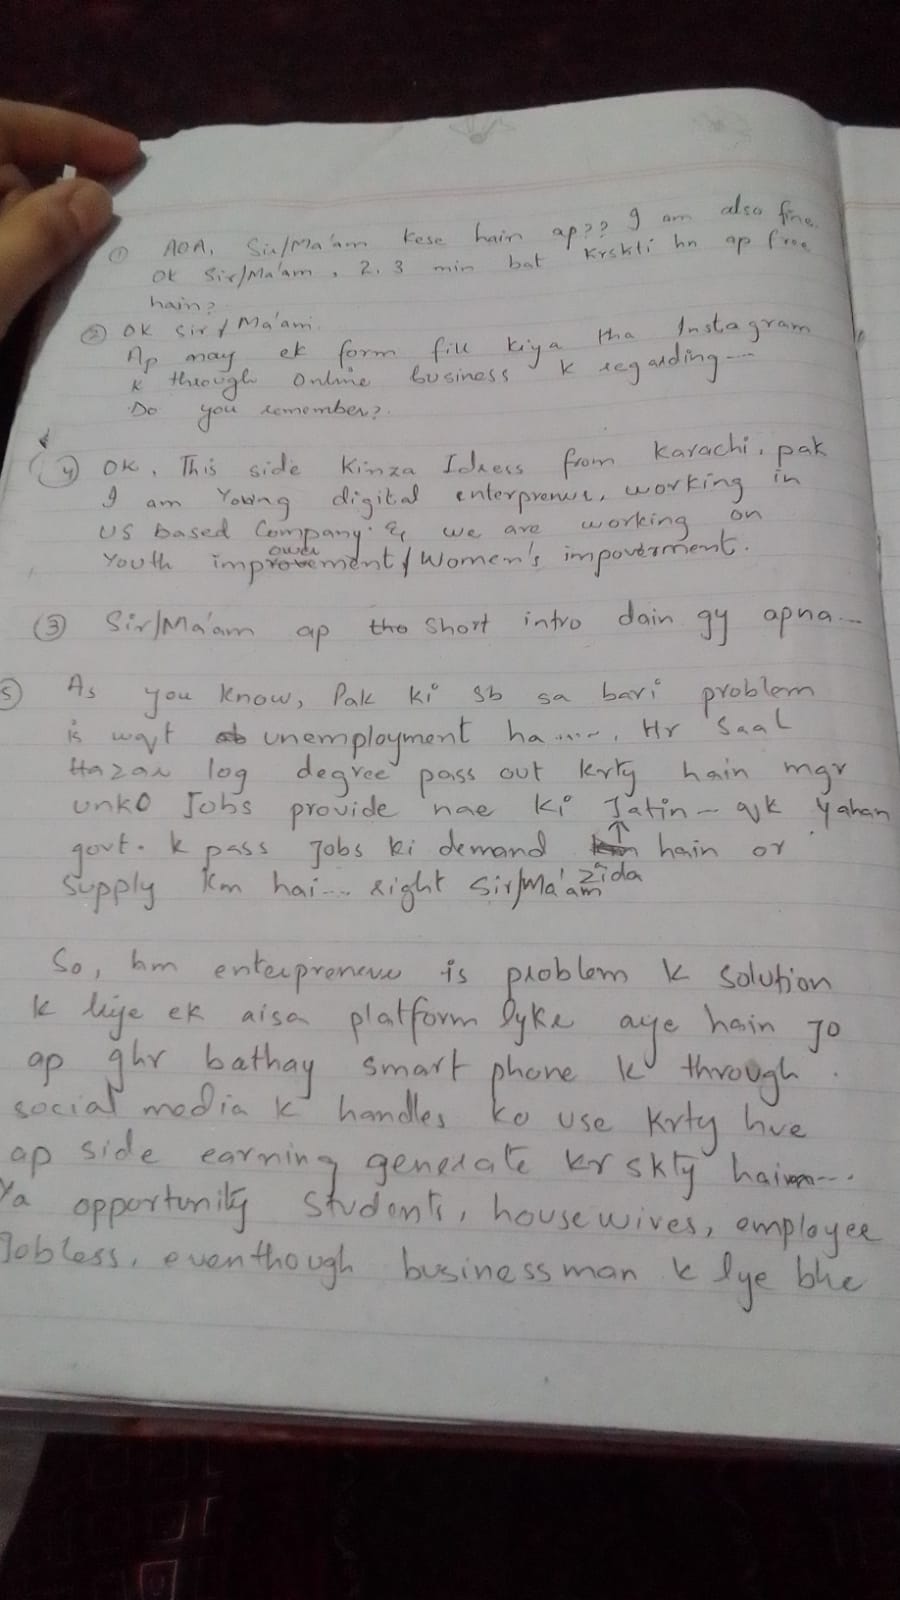 ① AOA, Sir/Ma'am kese hain ap?? I am also fine.
Ok Sir/Ma'am, 2.3 min bat krskti hn ap free
hain?
② OK Sir / Ma'am.
Ap may ek form fill kiya tha Instagram
k through online business k regarding---
Do you remember?
④ OK. This side Kinza Idress from Karachi, pak
I am Young digital enterprenur, working in
US based Company & we are working on
Youth improvement / Women's impoverment.
③ Sir/Ma'am ap tho short intro dain gy apna---
⑤ As you know, Pak ki sb sa bari problem
is waqt unemployment ha...., Hr Saal
Hazar log degree pass out krty hain mgr
unko Jobs provide nae ki Jatin - ajk Yahan
govt. k pass Jobs ki demand zida hain or
Supply km hai... right Sir/Ma'am
So, hm enterpreneur is problem k solution
k liye ek aisa platform lyke aye hain Jo
ap ghr bathay smart phone k through
social media k handles ko use krty hve
ap side earning generate kr skty hain---.
Ya opportunity students, housewives, employee
Jobless, eventhough businessman k lye bhe